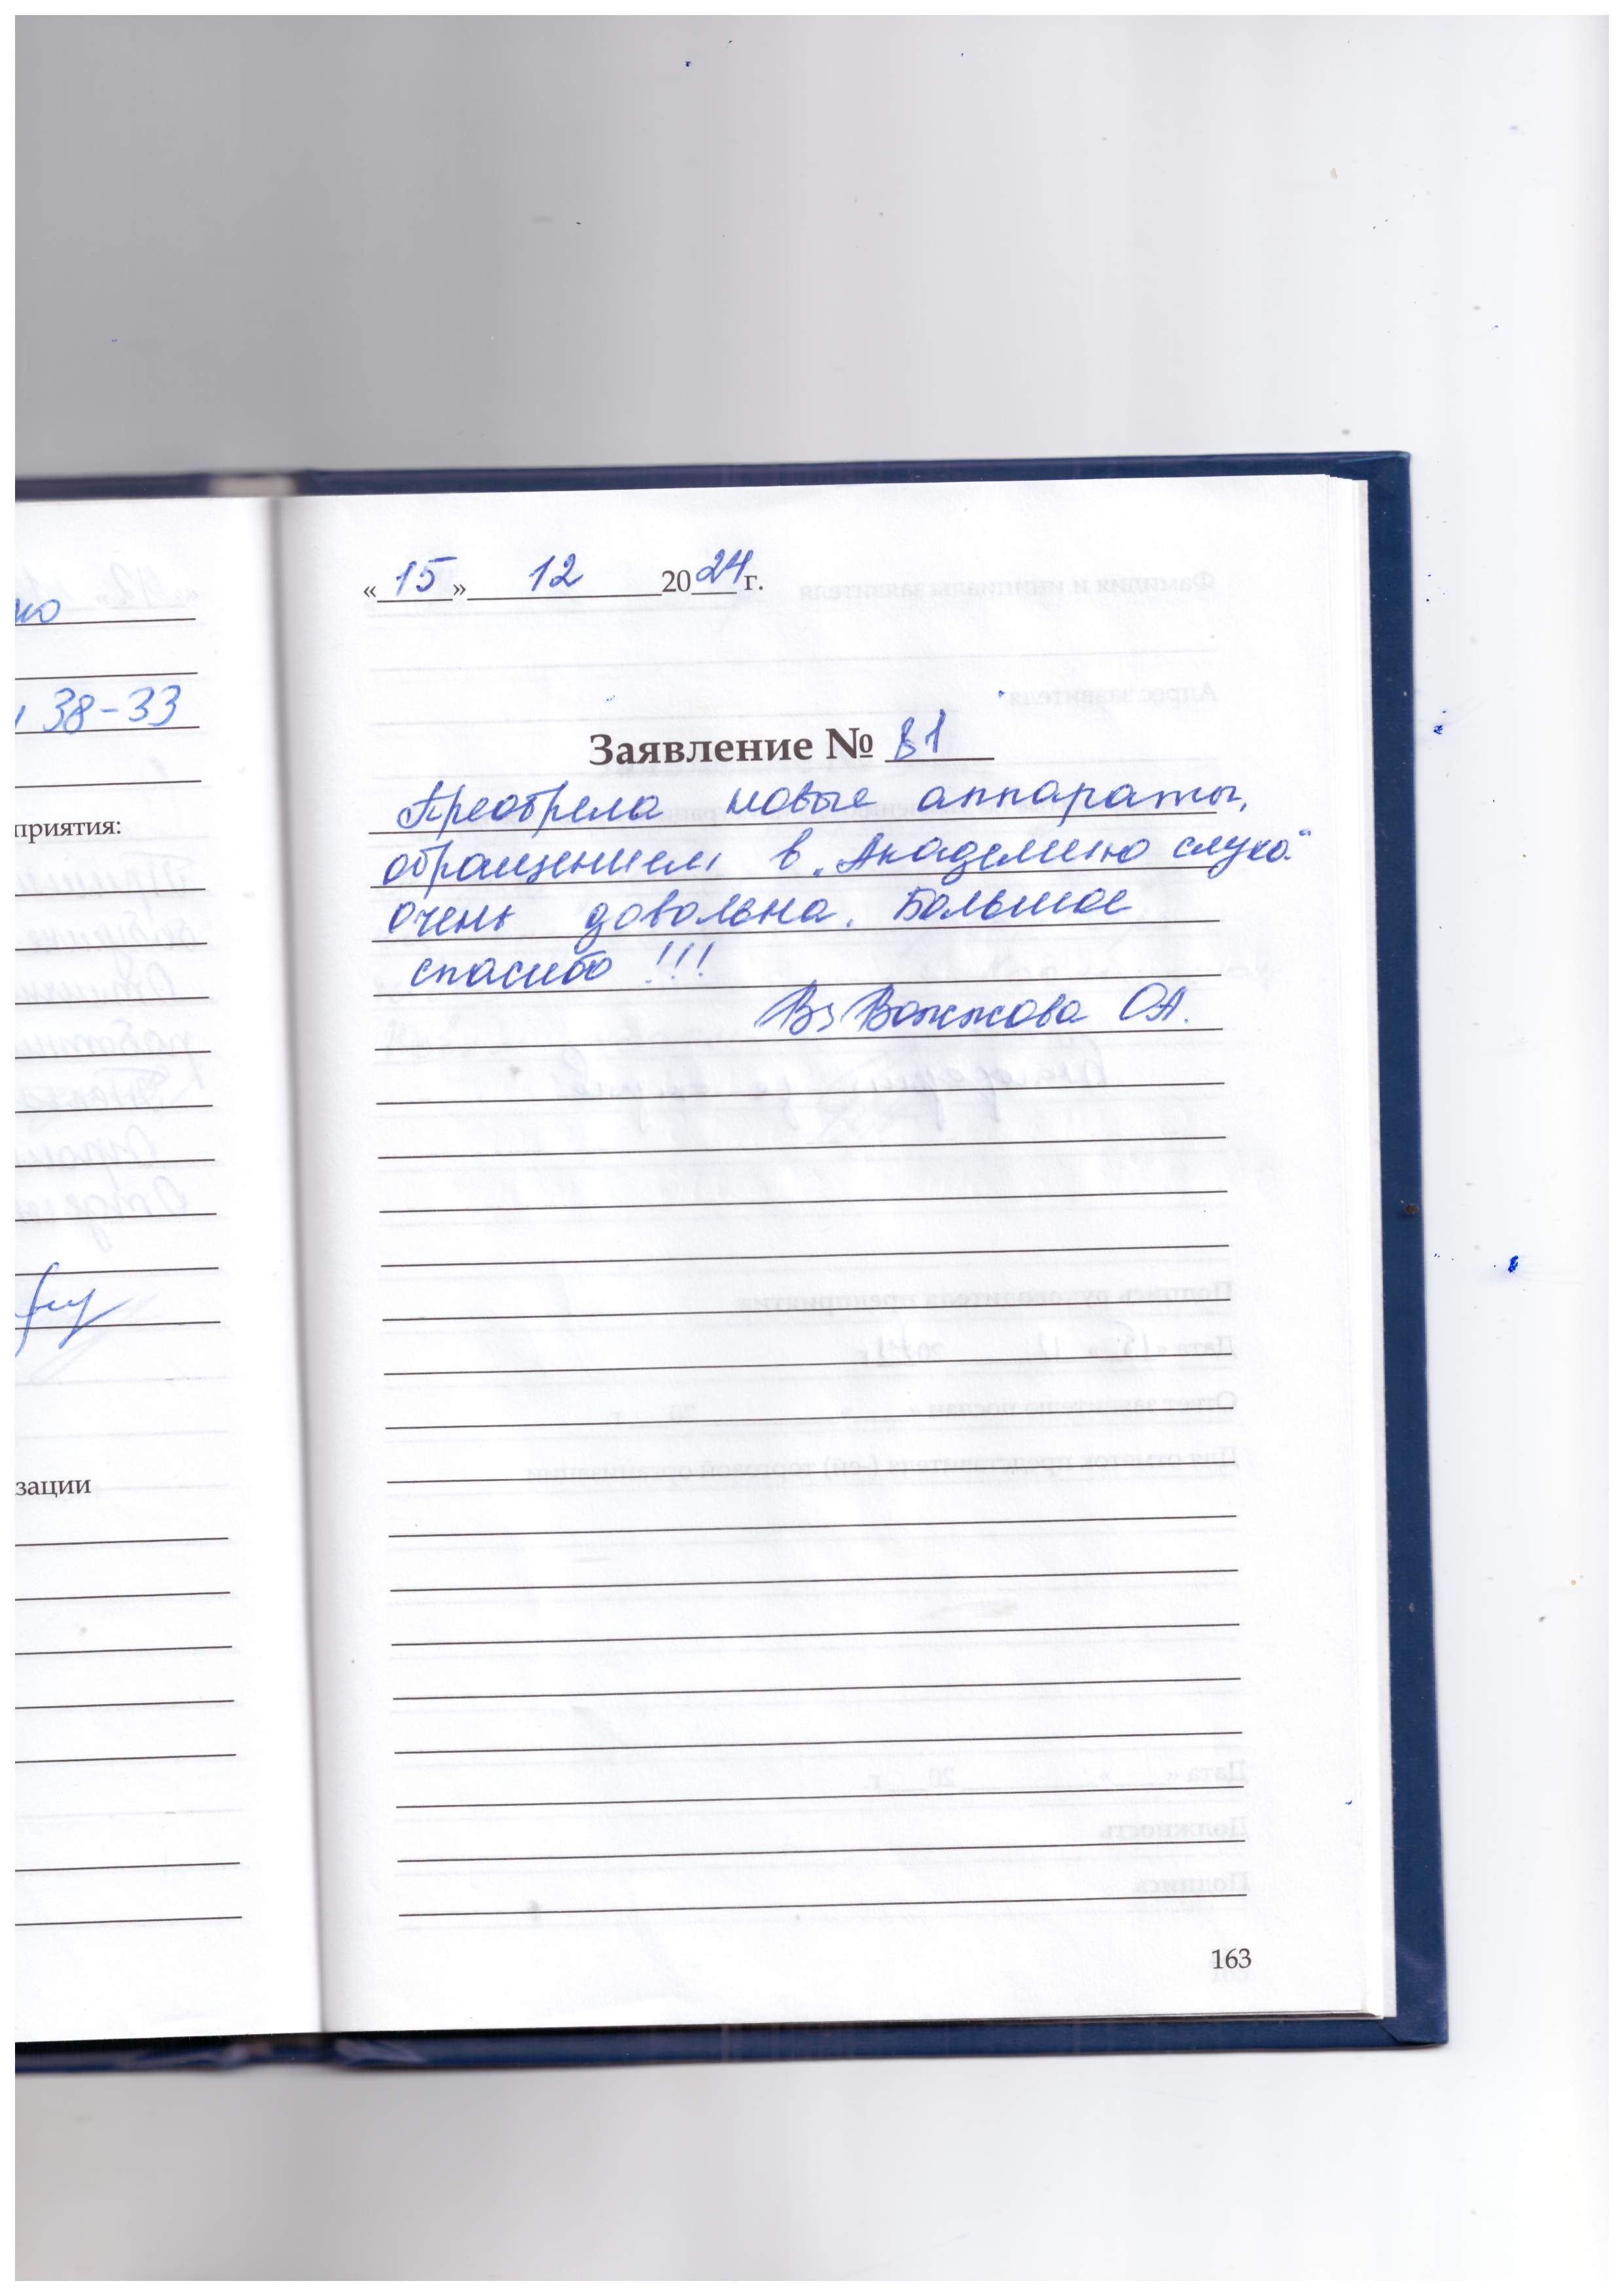 но
38-33
приятия:
зации
« 15 » 12 2024 г.
Заявление № 81
Преобрела новые аппараты,
обращением в „Академию слуха"
очень довольна. Большое
спасибо !!!
Вожжова ОА.
163